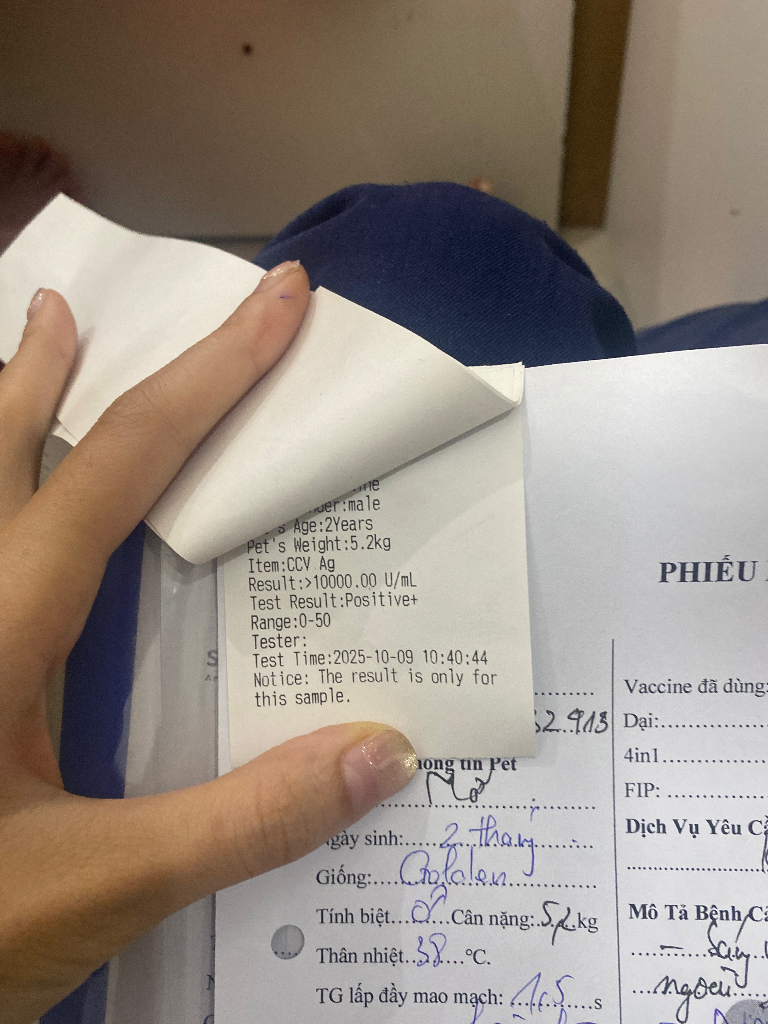 :male
Age:2Years
Pet's Weight:5.2kg
Item:CCV Ag
Result:>10000.00 U/mL
Test Result:Positive+
Range:0-50
Tester:
Test Time:2025-10-09 10:40:44
Notice: The result is only for
this sample.
PHIẾU
Pet
2 tháng
Giống:
Tính biệt...♂...Cân nặng:.5,2.kg
Thân nhiệt..38....°C.
TG lấp đầy mao mạch:.1,5....s
Vaccine đã dùng:
Dại:
4in1
FIP:
Dịch Vụ Yêu
Mô Tả Bệnh